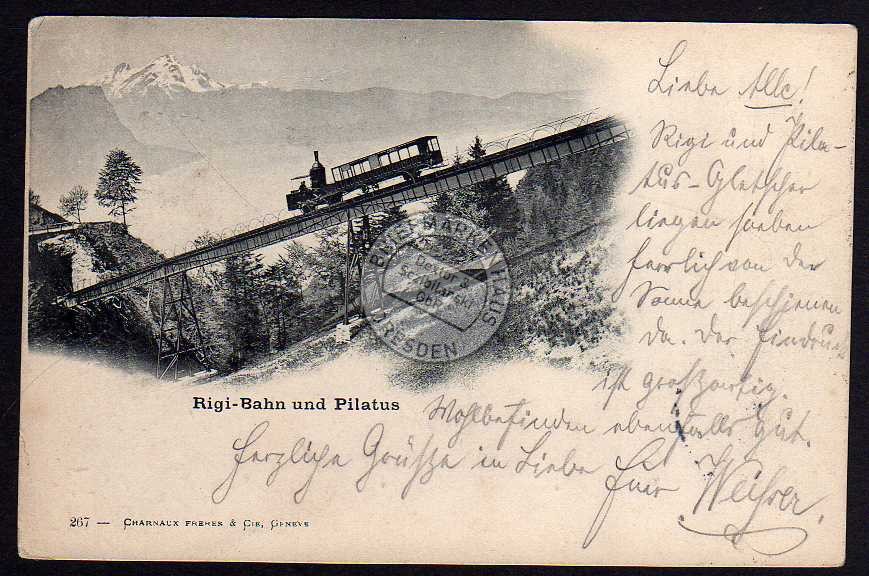 Liebe Alle!
Rigi und Pila-
tus-Gletscher
liegen soeben
herrlich von der
Sonne beschienen
da. Der Eindruck
ist großartig.
Wohlbefinden ebenfalls gut.
Herzliche Grüße in Liebe
Euer
Rigi-Bahn und Pilatus
267 — CHARNAUX FRÈRES & CIE, GENÈVE
BRIEFMARKENHAUS
DRESDEN